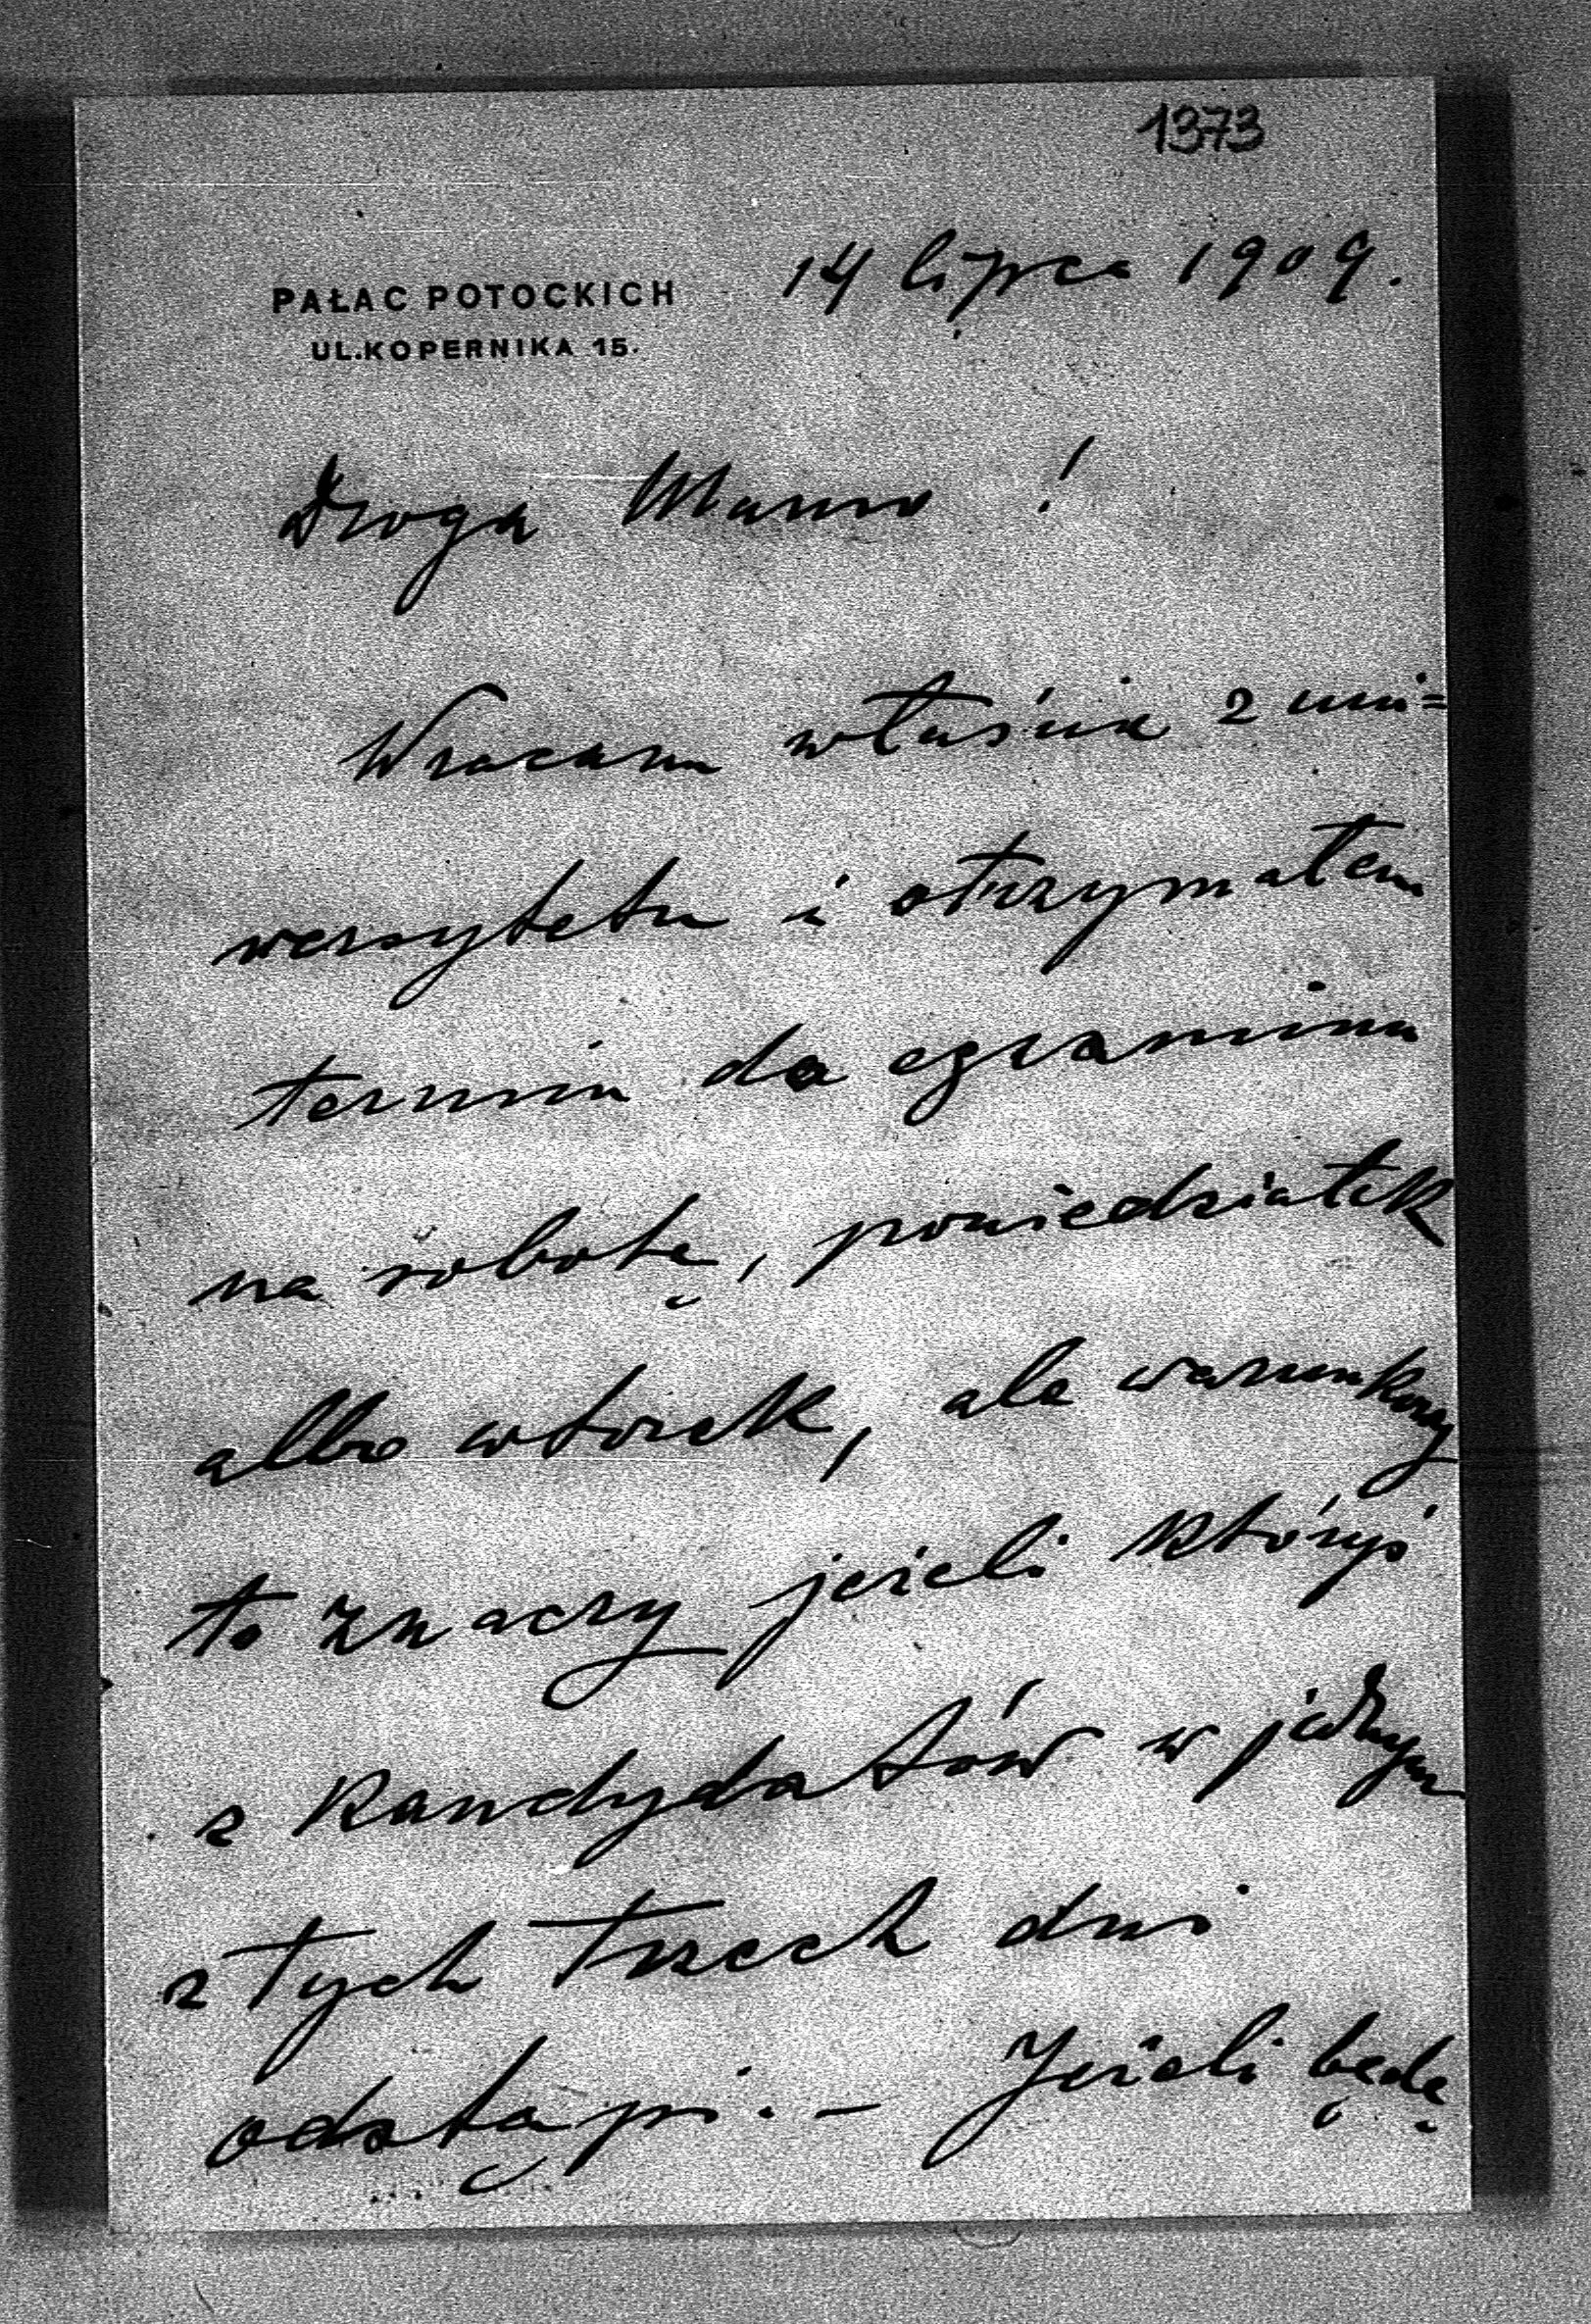 1373
14 lipca 1909.
PAŁAC POTOCKICH
UL.KOPERNIKA 15.
Droga Mamo!
Wracam właśnie z uni=
wersytetu i otrzymałem
termin do egzaminu
na sobotę, poniedziałek
albo wtorek, ale warunkowy
to znaczy jeżeli któryś
z kandydatów w jednym
z tych trzech dni
odstąpi. – Jeżeli będę